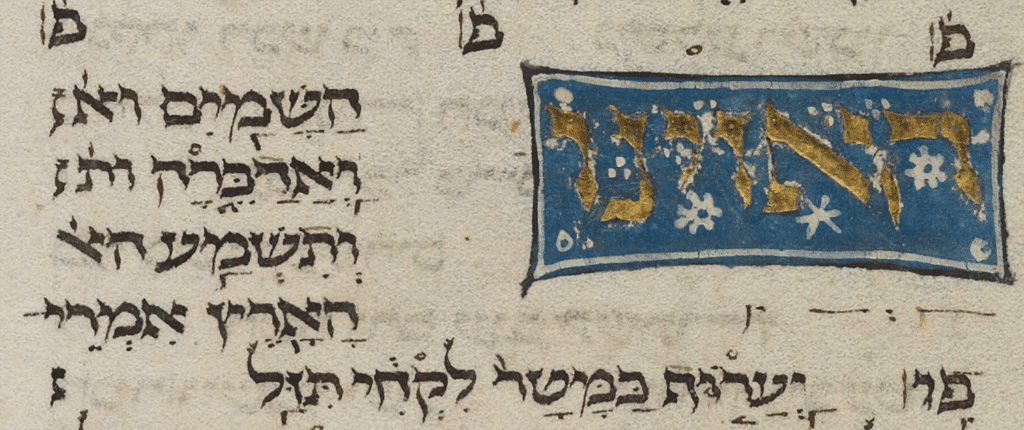 פ פ פ
האזינו הַשָּׁמַיִם וא
וַאֲדַבֵּרָה ות
וְתִשְׁמַע הא
הָאָרֶץ אִמְרֵי
פי יַעֲרֹף כַּמָּטָר לִקְחִי תִּזַּל